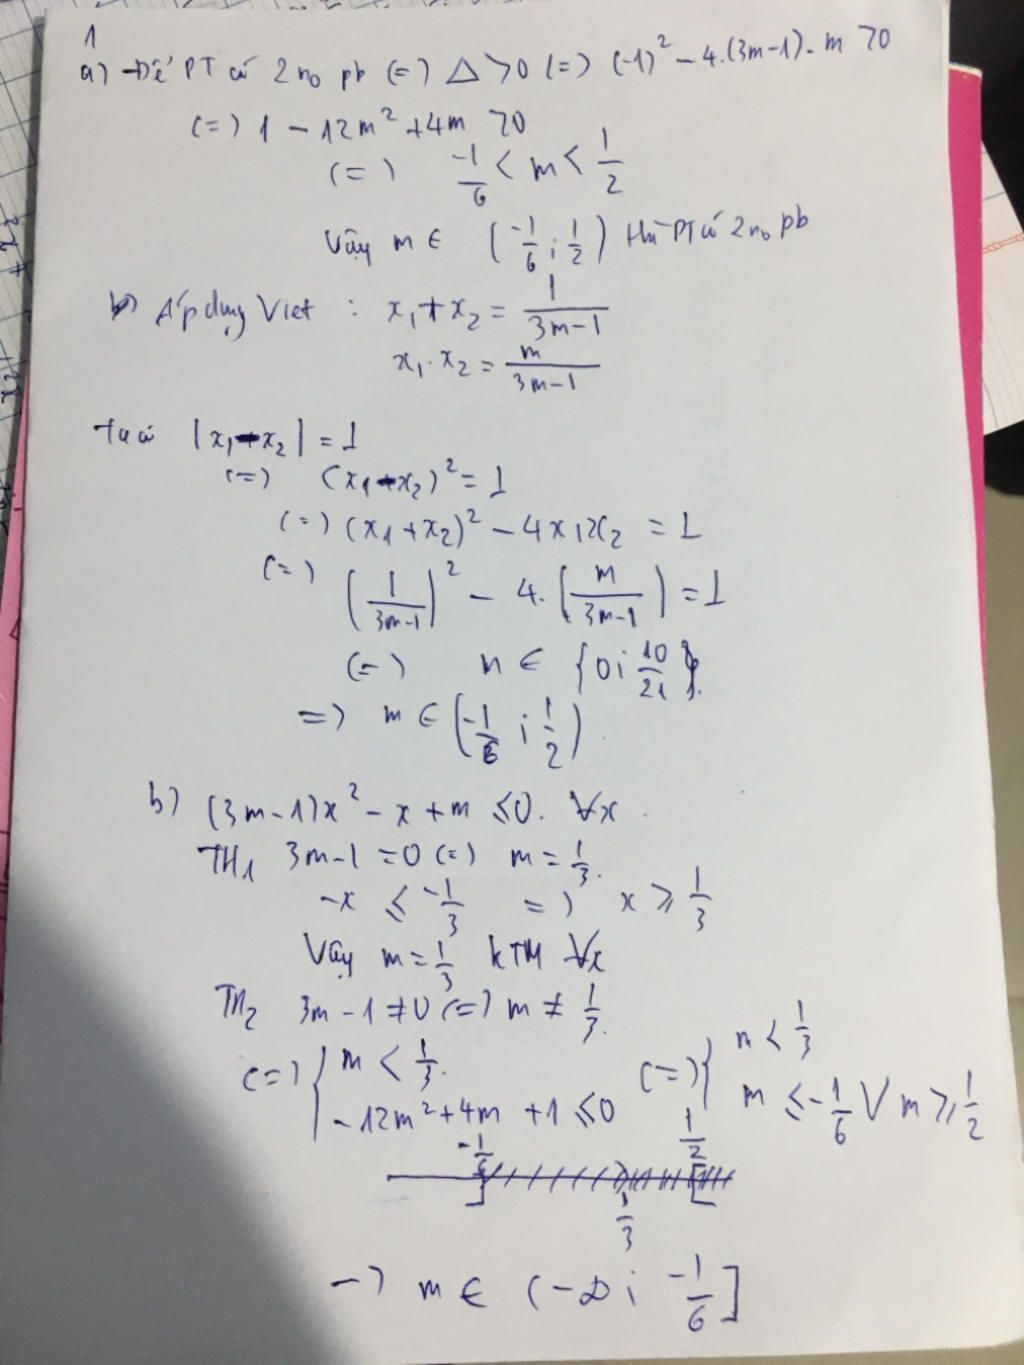 1
a) Để PT có 2 no pb (=) Δ > 0 (=) (-1)² - 4.(3m-1). m > 0
(=) 1 - 12m² + 4m > 0
(=) -1/6 < m < 1/2
Vậy m ∈ (-1/6 ; 1/2) thì PT có 2 no pb
b) Áp dụng Viet : x₁ + x₂ = 1/(3m-1)
x₁ . x₂ = m/(3m-1)
Ta có |x₁ - x₂| = 1
(=) (x₁ - x₂)² = 1
(=) (x₁ + x₂)² - 4x₁x₂ = 1
(=) (1/(3m-1))² - 4. (m/(3m-1)) = 1
(=) m ∈ {0 ; 10/21}
=) m ∈ (-1/6 ; 1/2)
b) (3m-1)x² - x + m ≤ 0. ∀x
TH₁ 3m-1 = 0 (=) m = 1/3.
-x ≤ -1/3 =) x ≥ 1/3
Vậy m = 1/3 kTM ∀x
TH₂ 3m - 1 ≠ 0 (=) m ≠ 1/3.
(=) { m < 1/3. (=) { m < 1/3
-12m² + 4m + 1 ≤ 0 m ≤ -1/6 V m ≥ 1/2
-1/6 1/2
] [
1/3
-) m ∈ (-∞ ; -1/6]